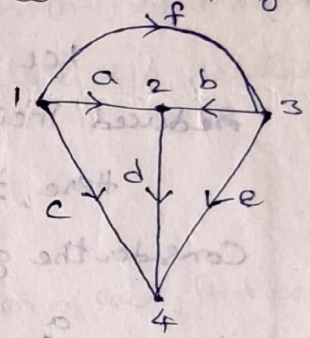 f
1 a 2 b 3
c d e
4